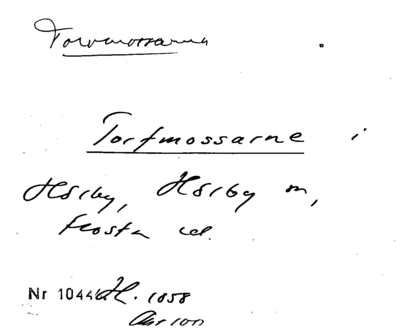 Torvmossarna
Torfmossarne i
Hörby, Hörby m,
frosta
Nr 1044 H. 1058